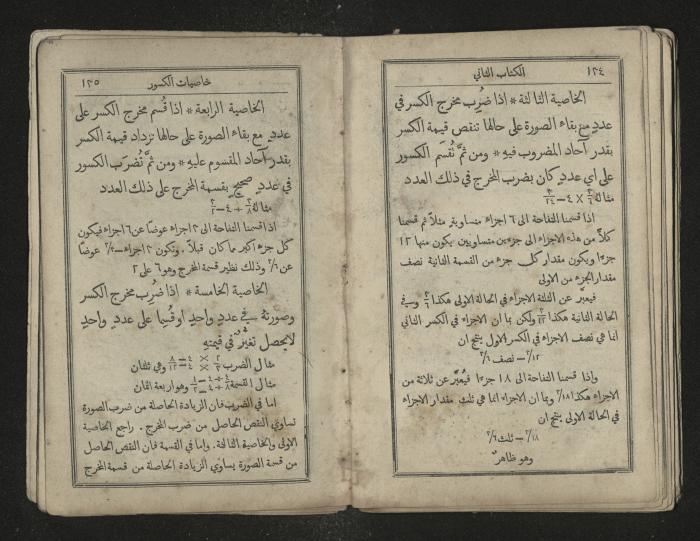 ١٢٤ الكتاب الثاني
الخاصية الثالثة * اذا ضُرِب مخرج الكسر في
عددٍ مع بقاء الصورة على حالها تنقص قيمة الكسر
بقدر آحاد المضروب فيهِ * ومن ثمَّ تُقسَم الكسور
على اي عددٍ كان بضرب المخرج في ذلك العدد
مثالهُ
اذا قسمنا التفاحة الى ٦ اجزاء متساوية ثم قسمنا
كلاًّ من هذه الاجزاء الى جزءين متساويين يكون منها ١٢
جزءا ويكون مقدار كل جزء من القسمة الثانية نصف
مقدار الجزء من الاولى
فيعبَّر عن الثلثة الاجزاء في الحالة الاولى هكذا ٣/٦ وفي
الحالة الثانية هكذا ٣/١٢ ولكن بما ان الاجزاء في الكسر الثاني
انما هي نصف الاجزاء في الكسر الاول ينتج ان
٣/١٢ = نصف ٣/٦
واذا قسمنا التفاحة الى ١٨ جزءا فيُعبَّر عن ثلاثة من
الاجزاء هكذا ٣/١٨ وبما ان الاجزاء انما هي ثلث مقدار الاجزاء
في الحالة الاولى ينتج ان
٣/١٨ = ثلث ٣/٦
وهو ظاهرٌ
خاصيات الكسور ١٢٥
الخاصية الرابعة * اذا قُسم مخرج الكسر على
عددٍ مع بقاء الصورة على حالها تزداد قيمة الكسر
بقدر آحاد المقسوم عليهِ * ومن ثمَّ تُضرَب الكسور
في عددٍ صحيحٍ بقسمة المخرج على ذلك العدد
مثالهُ
اذا قسمنا التفاحة الى ٣ اجزاء عوضًا عن ٦ اجزاء فيكون
كل جزء اكبر مما كان قبلاً. وتكون ٢ اجزاء = ٢/٣ عوضًا
عن ٢/٦ وذلك نظير قسمة المخرج وهو ٦ على ٢
الخاصية الخامسة * اذا ضُرب مخرج الكسر
وصورتهُ في عددٍ واحدٍ او قُسِما على عددٍ واحدٍ
لايحصل تغيُّرٌ في قيمتهِ
مثال الضرب ٢/٣ × ٤/٤ = ٨/١٢ وهي ثلثان
مثال القسمة ٤/٨ ÷ ٤/٤ = ١/٢ وهو اربعة اثمان
اما في الضرب فان الزيادة الحاصلة من ضرب الصورة
تساوي النقص الحاصل من ضرب المخرج. راجع الخاصية
الاولى والخاصية الثالثة. واما في القسمة فان النقص الحاصل
من قسمة الصورة يساوي الزيادة الحاصلة من قسمة المخرج